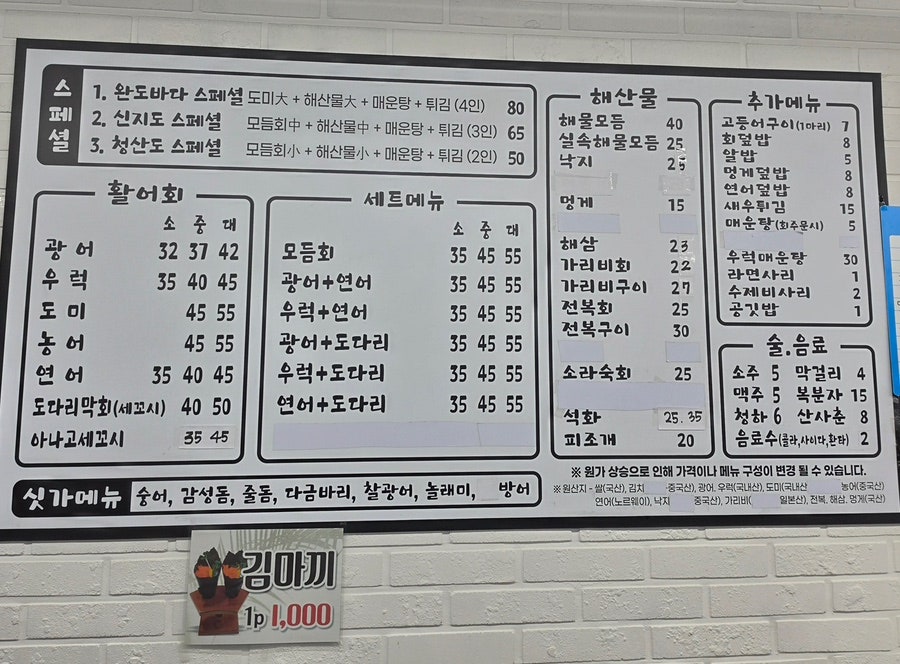 스페셜
1. 완도바다 스페셜 도미大 + 해산물大 + 매운탕 + 튀김 (4인) 80
2. 신지도 스페셜 모듬회中 + 해산물中 + 매운탕 + 튀김 (3인) 65
3. 청산도 스페셜 모듬회小 + 해산물小 + 매운탕 + 튀김 (2인) 50
활어회
소 중 대
광어 32 37 42
우럭 35 40 45
도미 45 55
농어 45 55
연어 35 40 45
도다리막회(세꼬시) 40 50
아나고세꼬시 35 45
세트메뉴
소 중 대
모듬회 35 45 55
광어+연어 35 45 55
우럭+연어 35 45 55
광어+도다리 35 45 55
우럭+도다리 35 45 55
연어+도다리 35 45 55
해산물
해물모듬 40
실속해물모듬 25
낙지 25
멍게 15
해삼 23
가리비회 22
가리비구이 27
전복회 25
전복구이 30
소라숙회 25
석화 25.35
피조개 20
추가메뉴
고등어구이(1마리) 7
회덮밥 8
알밥 5
멍게덮밥 8
연어덮밥 8
새우튀김 15
매운탕(회주문시) 5
우럭매운탕 30
라면사리 1
수제비사리 2
공깃밥 1
술.음료
소주 5 막걸리 4
맥주 5 복분자 15
청하 6 산사춘 8
음료수(콜라,사이다,환타) 2
싯가메뉴 숭어, 감성돔, 줄돔, 다금바리, 찰광어, 놀래미, 방어
※ 원가 상승으로 인해 가격이나 메뉴 구성이 변경 될 수 있습니다.
※ 원산지 - 쌀(국산), 김치 -중국산), 광어, 우럭(국내산), 도미(국내산 농어(중국산)
연어(노르웨이), 낙지 중국산), 가리비( 일본산), 전복, 해삼, 멍게(국산)
김마끼
1p 1,000